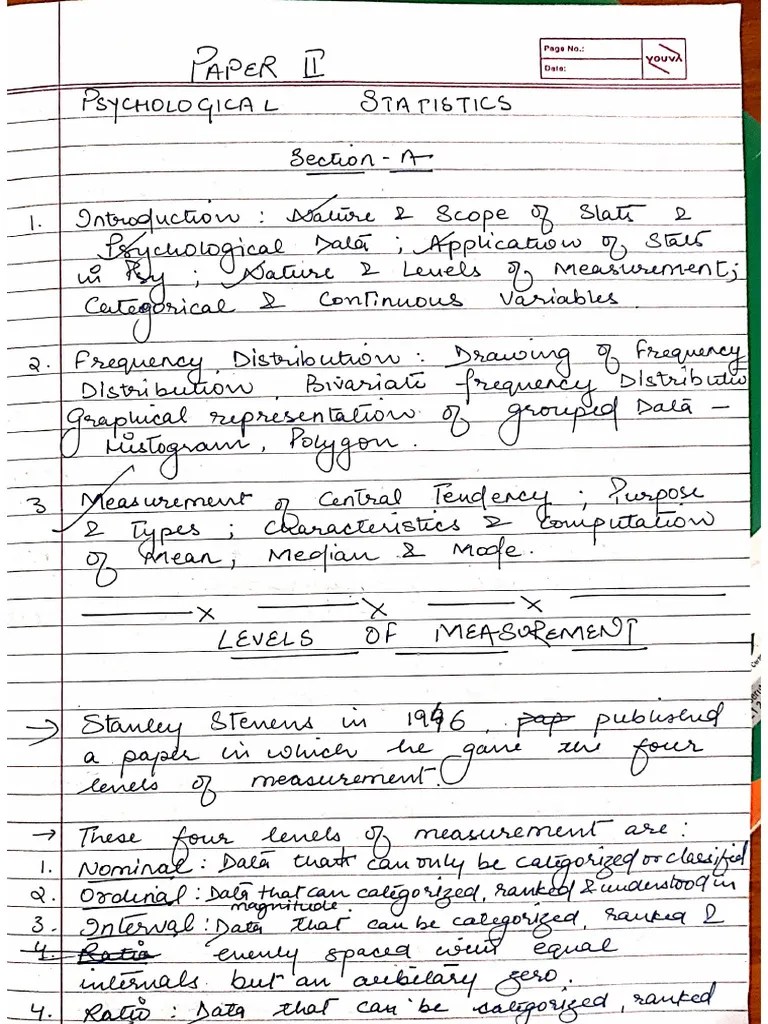 PAPER II
Page No.:
Date:
youva
PSYCHOLOGICAL STATISTICS
Section - A
1. Introduction : Nature & Scope of Stats &
Psychological Data ; Application of Stats
in Psy ; Nature & Levels of Measurement;
Categorical & Continuous Variables.
2. Frequency Distribution : Drawing of Frequency
Distribution, Bivariate frequency Distributio
Graphical representation of grouped Data –
Histogram, Polygon.
3 Measurement of Central Tendency ; Purpose
& Types ; Characteristics & Computation
of Mean, Median & Mode.
x x x
LEVELS OF MEASUREMENT
→ Stanley Stevens in 1946, pap published
a paper in which he gave the four
levels of measurement.
→ These four levels of measurement are :
1. Nominal : Data that can only be categorized or classified
2. Ordinal : Data that can categorized, ranked & understood in
magnitude.
3. Interval : Data that can be categorized, ranked &
4. Ratio evenly spaced went equal
intervals but an aribitary zero.
4. Ratio : Data that can be categorized, ranked